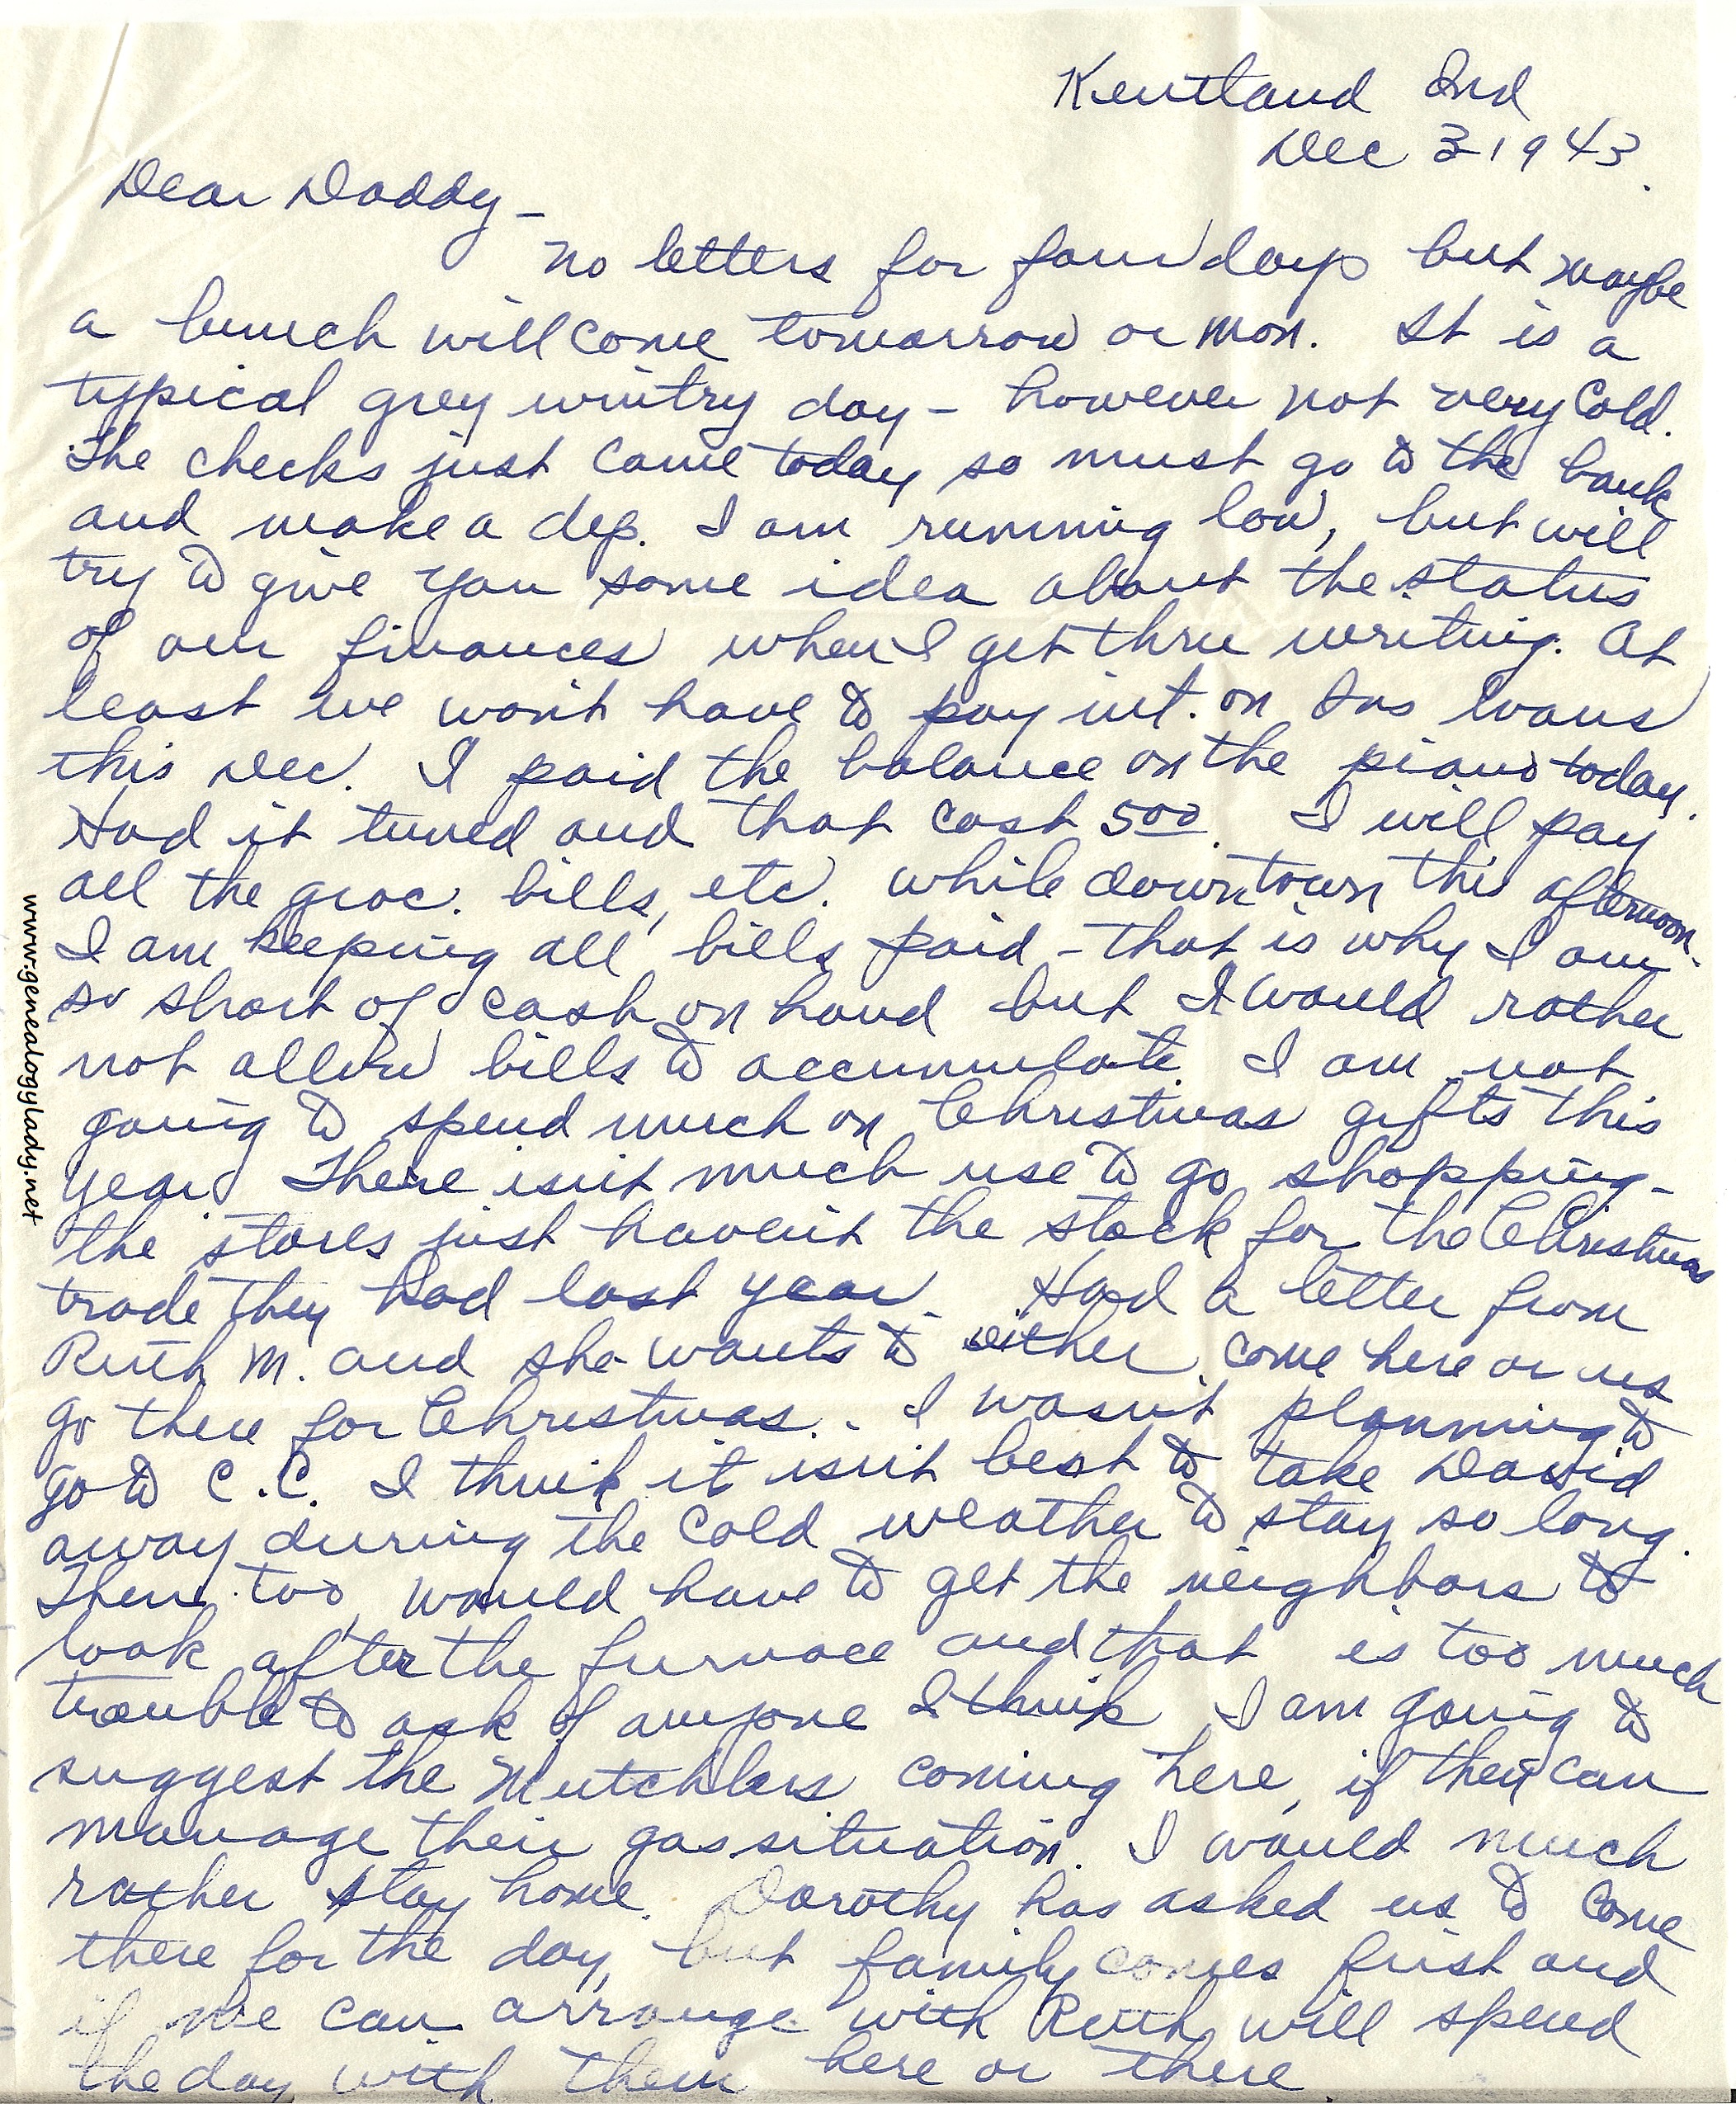 Kentland Ind
Dec 3 1943.
Dear Daddy –
No letters for four days but maybe
a bunch will come tomorrow or Mon. It is a
typical grey wintry day – however not very cold.
The checks just came today so must go to the bank
and make a dep. I am running low, but will
try to give you some idea about the status
of our finances when I get thru writing. At
least we won't have to pay int. on Ins loans
this Dec. I paid the balance on the piano today.
Had it tuned and that cost 500. I will pay
all the groc. bills, etc. while downtown this afternoon.
I am keeping all bills paid – that is why I am
so short of cash on hand but I would rather
not allow bills to accumulate. I am not
going to spend much on Christmas gifts this
year. There isn't much use to go shopping –
the stores just haven't the stock for the Christmas
trade they had last year. Had a letter from
Ruth M. and she wants to either come here or us
go there for Christmas. I wasn't planning to
go to C.C. I think it isn't best to take David
away during the cold weather to stay so long.
Then too, would have to get the neighbors to
look after the furnace and that is too much
trouble to ask of anyone I think. I am going to
suggest the Mutchlers coming here, if they can
manage their gas situation. I would much
rather stay home. Dorothy has asked us to come
there for the day, but family comes first and
if we can arrange with Ruth, will spend
the day with them here or there.
www.genealogylady.net